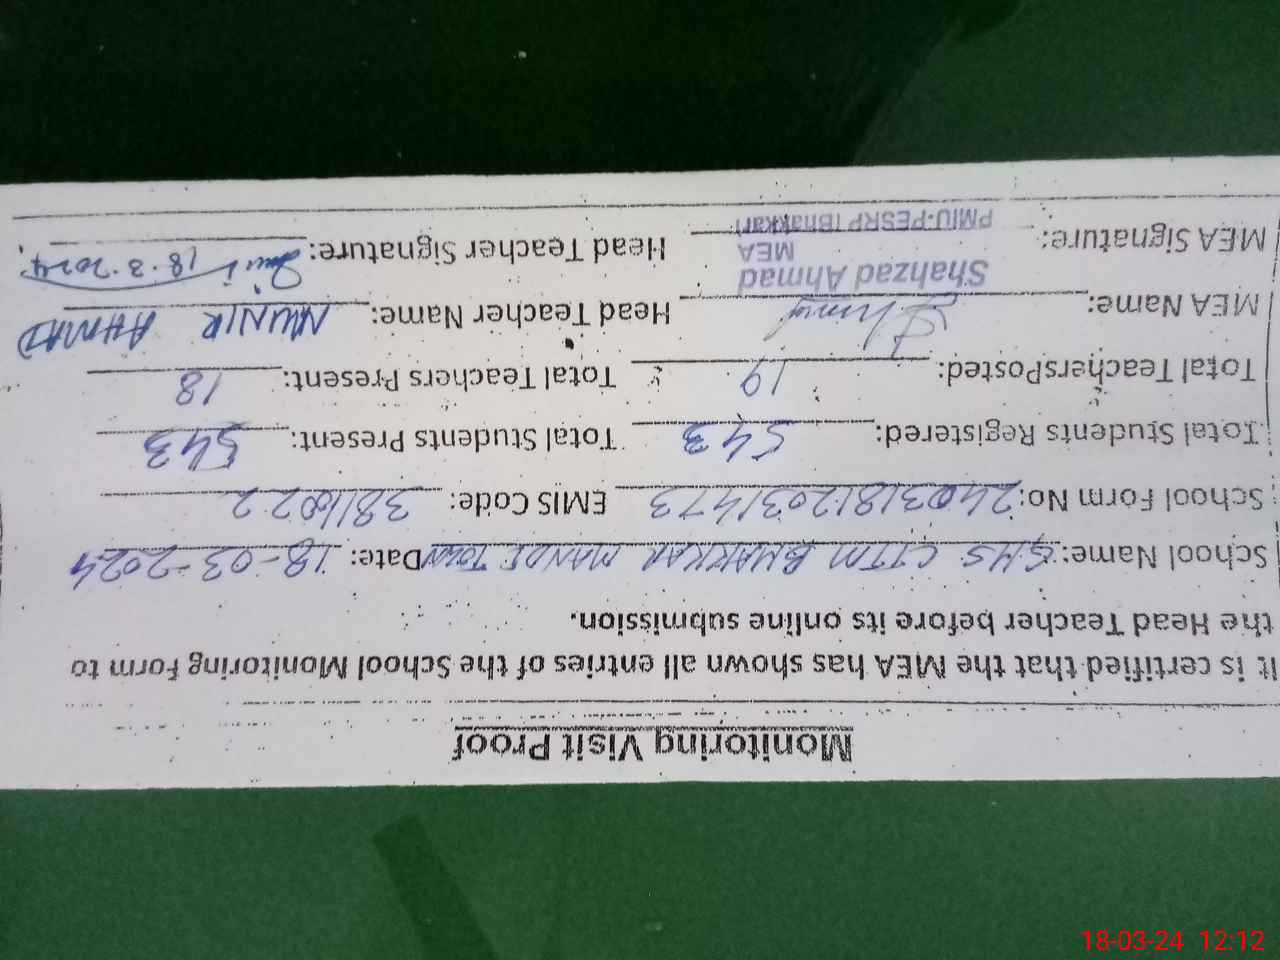 Monitoring Visit Proof
It is certified that the MEA has shown all entries of the School Monitoring Form to
the Head Teacher before its online submission.
School Name: GHS CTTM BHAKKAR MANDI TOWN Date: 18-03-2024
School Form No: 24031812031473 EMIS Code:
Total Students Registered: 543 Total Students Present: 543
Total TeachersPosted: 19 Total Teachers Present: 18
MEA Name: Head Teacher Name: MUNIR AHMAD
Shahzad Ahmad
MEA
PMIU-PESRP (Bhakkar)
MEA Signature: Head Teacher Signature: 18.3.2024
18-03-24 12:12